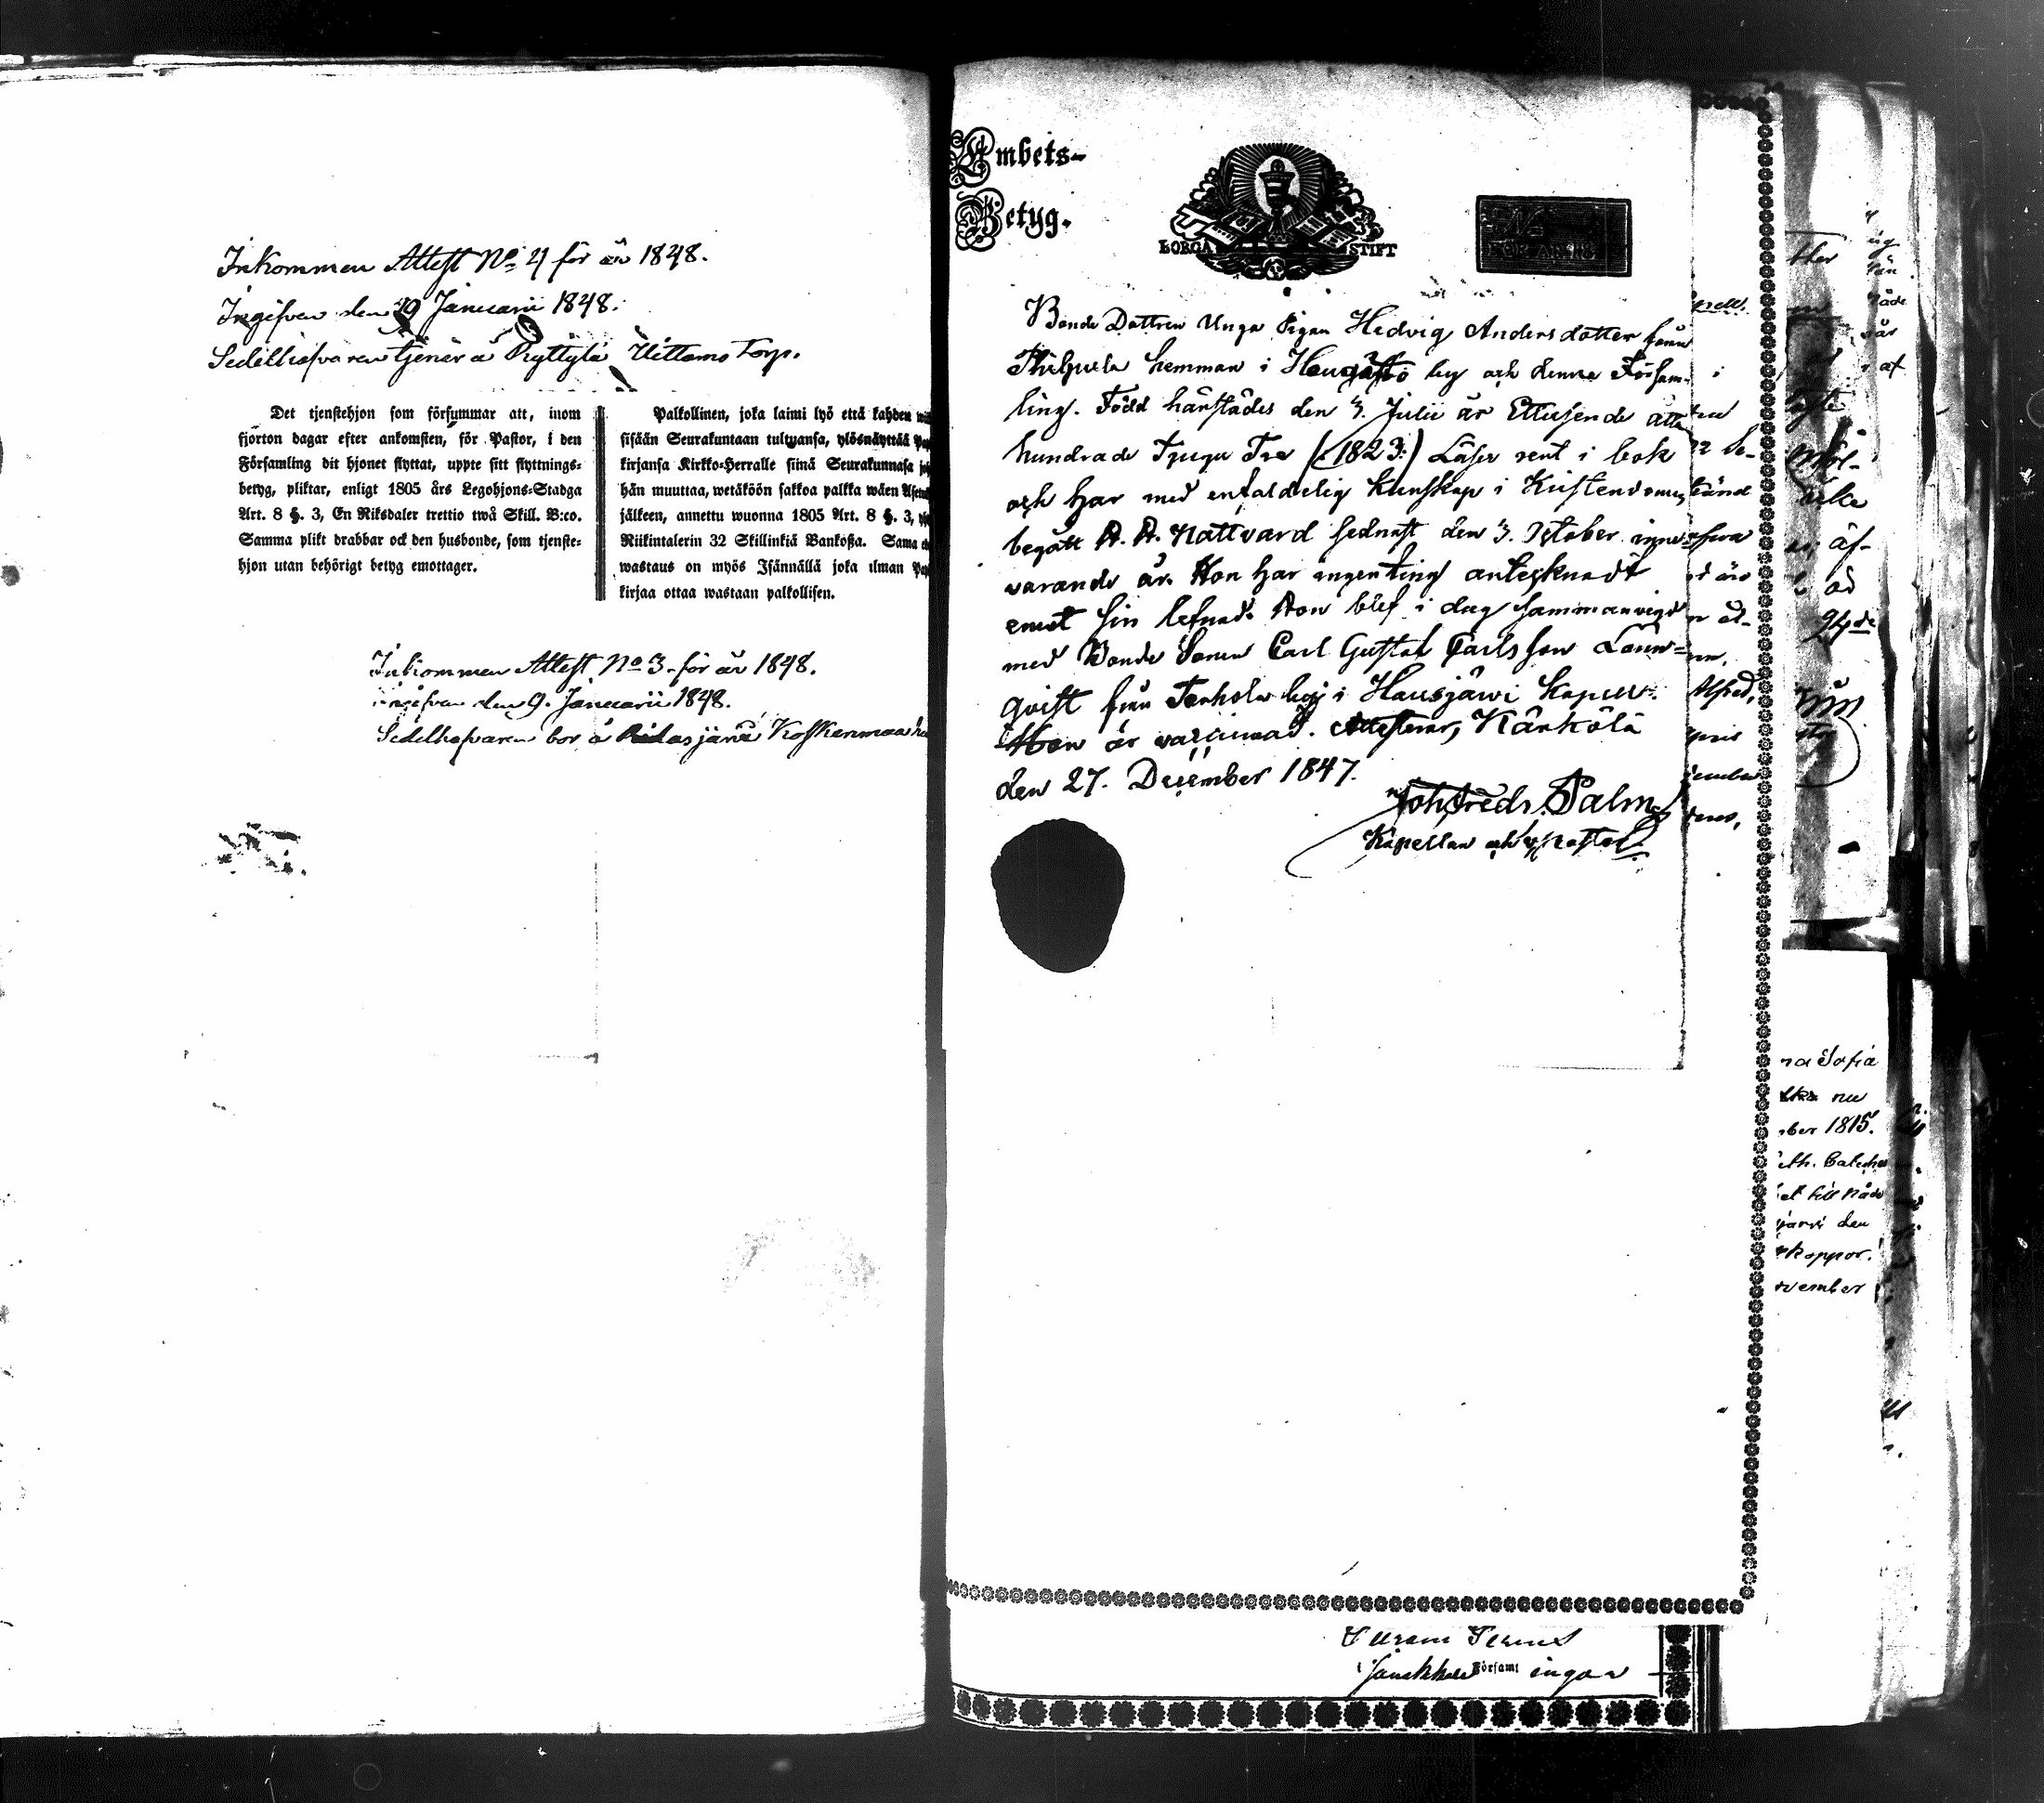 Inkommen Attest No 4 för år 1848.
Ingifven den 19 Januarii 1848.
Sedelhafvaren tjenar å Ryttylä Uittamo Torp.
Det tjenstehjon som försummar att, inom
fjorton dagar efter ankomsten, för Pastor, i den
Församling dit hjonet flyttat, uppte sitt flyttnings-
betyg, pliktar, enligt 1805 års Legohjons-Stadga
Art. 8 §. 3, En Riksdaler trettio twå Skill. B:co.
Samma plikt drabbar ock den husbonde, som tjenste-
hjon utan behörigt betyg emottager.
Palkollinen, joka laimi lyö että kahden
sisään Seurakuntaan tultuansa, ylösnäyttää
kirjansa Kirkko-Herralle siinä Seurakunnasa
hän muuttaa, wetäköön sakkoa palkka wäen
jälkeen, annettu wuonna 1805 Art. 8 §. 3,
Riikintalerin 32 Skillinkiä Bankoßa. Sama
wastaus on myös Isännällä joka ilman
kirjaa ottaa wastaan palkollisen.
Inkommen Attest No 3 för år 1848.
ingifven den 9. Januarii 1848.
Sedelhafvaren bor å Ridasjärvi Koskenmaa
Embets-
Betyg.
BORGÅ STIFT
Bonde Dottren Unga Pigan Hedvig Andersdotter från
hemman i by och denna Försam-
ling. Född härstädes den 3. Julii år Ettusende åtta
hundrade Tjugu Tre (:1823:) Läser rent i bok
och har med enfaldelig kunskap i Kristendomen
begått H. H. Nattvard sednast den 3. October inne-
varande år. Hon har ingenting antecknadt
emot sin lefnad. Hon blef i dag sammanvigd
med Bonde Sonen Carl Gustaf Carlsson Lönn-
qvist från Torhola by i Hausjärvi Kapell.
Hon är vaccinerad. Attesterar, Kärkölä
den 27. December 1847.
Joh. Fredr. Palm
Kapellan och v. Pastor.
na Sofia
nu
ber 1815.
till Nåde
järvi den
koppor.
vember
Församl